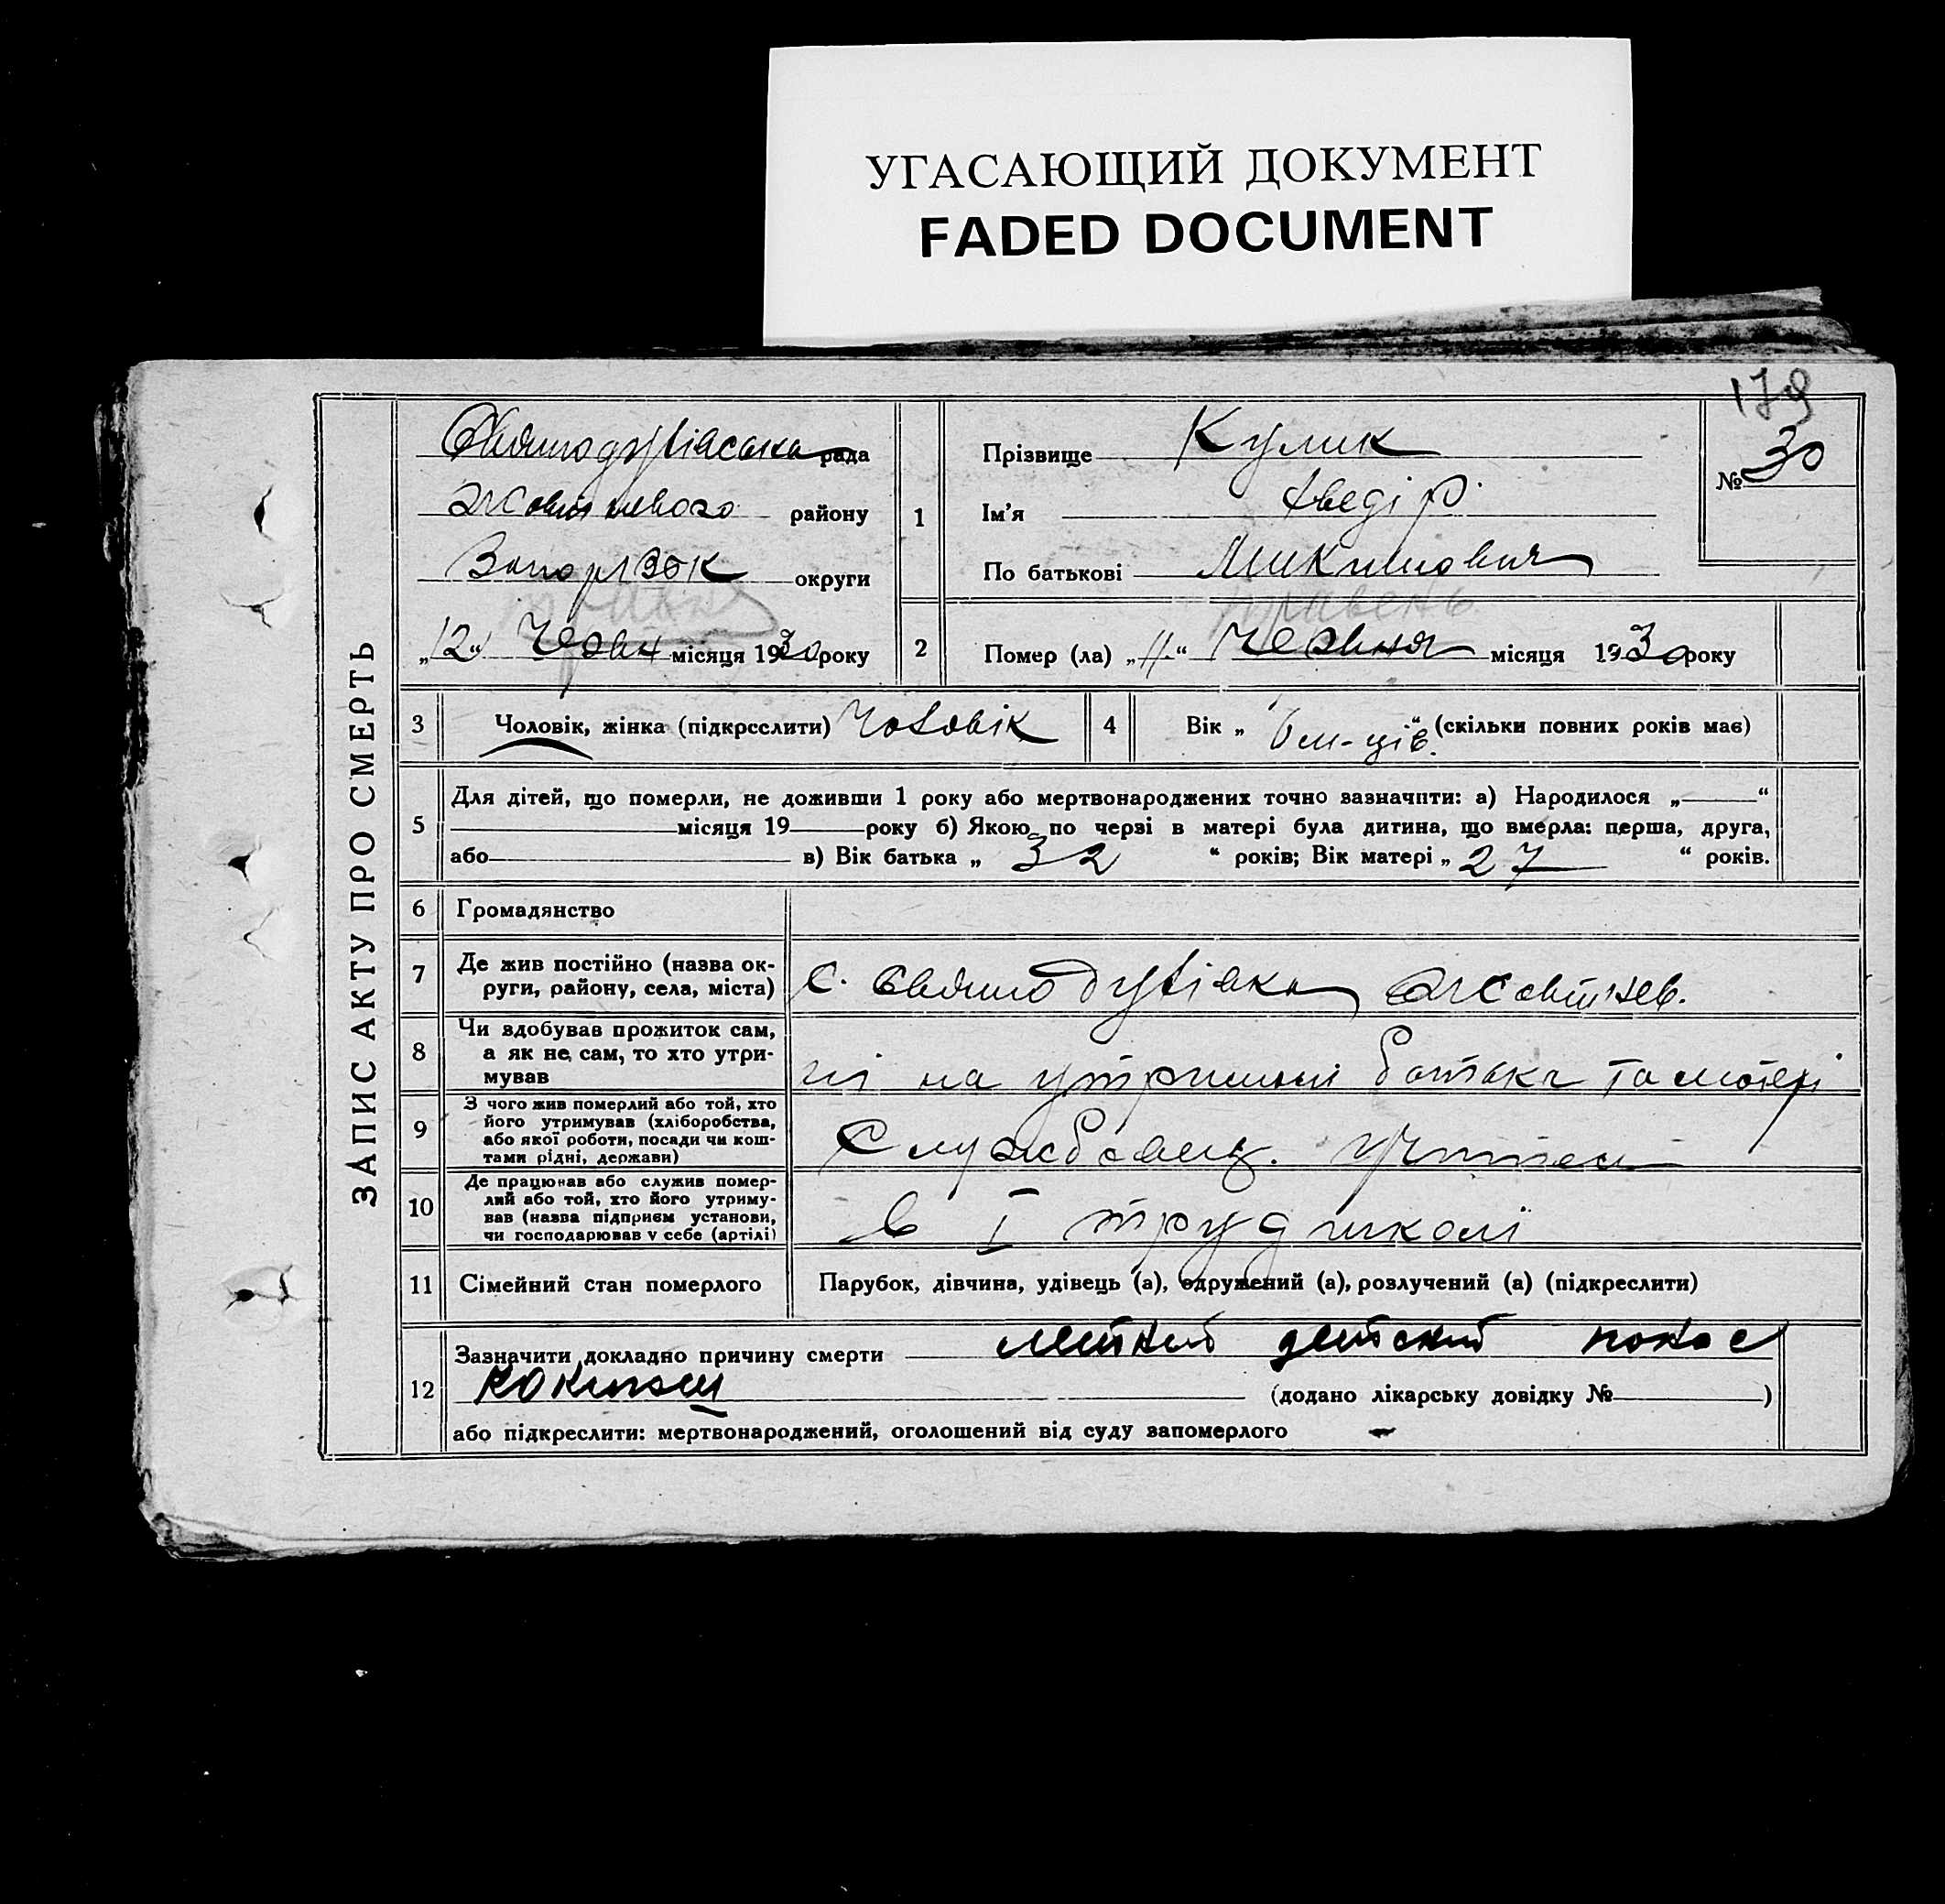 УГАСАЮЩИЙ ДОКУМЕНТ
FADED DOCUMENT
179
ЗАПИС АКТУ ПРО СМЕРТЬ
рада
району
округи
„12“ Червн місяця 1930 року
1
Прізвище Кулик
Ім'я Хведір
По батькові Микитович
№ 30
травень
2
Помер (ла) „11“ Червня місяця 1930 року
3
Чоловік, жінка (підкреслити) Чоловік
4
Вік „6 м-ців“ (скільки повних років має)
5
Для дітей, що померли, не доживши 1 року або мертвонароджених точно зазначити: а) Народилося „ “
місяця 19 року б) Якою по черзі в матері була дитина, що вмерла: перша, друга,
або в) Вік батька „ 32 “ років; Вік матері „ 27 “ років.
6
Громадянство
7
Де жив постійно (назва ок-
руги, району, села, міста)
с.
8
Чи здобував прожиток сам,
а як не сам, то хто утри-
мував
ні на утриманні батька та матері
9
З чого жив померлий або той, хто
його утримував (хліборобства,
або якої роботи, посади чи кош-
тами рідні, держави)
Службовец.
10
Де працював або служив помер-
лий або той, хто його утриму-
вав (назва підприєм установи,
чи господарював у себе (артілі)
в I трудшколі
11
Сімейний стан померлого
Парубок, дівчина, удівець (а), одружений (а), розлучений (а) (підкреслити)
12
Зазначити докладно причину смерти летний детский понос
(додано лікарську довідку № )
або підкреслити: мертвонароджений, оголошений від суду запомерлого